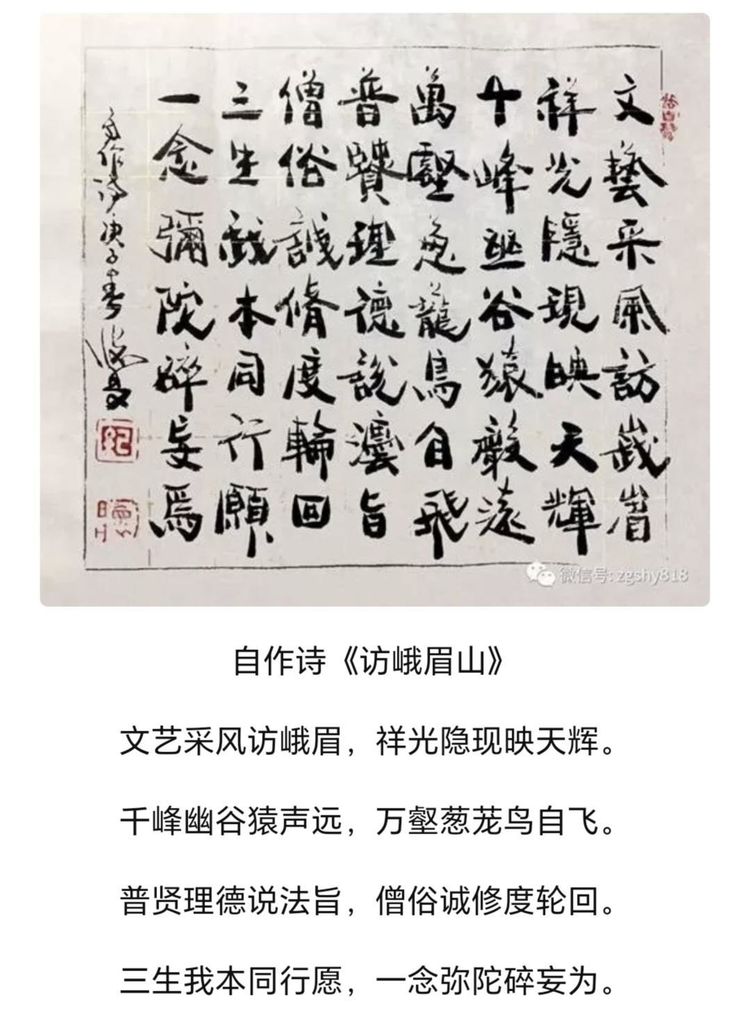 文藝采風訪峨眉
祥光隱現映天輝
千峰幽谷猿聲遠
萬壑葱蘢鳥自飛
普賢理德說灋旨
僧俗誠脩度輪回
三生我本同行願
一念彌陀碎妄爲
自作詩庚子春
紀
微信号: zgshy818
自作诗《访峨眉山》
文艺采风访峨眉，祥光隐现映天辉。
千峰幽谷猿声远，万壑葱茏鸟自飞。
普贤理德说法旨，僧俗诚修度轮回。
三生我本同行愿，一念弥陀碎妄为。